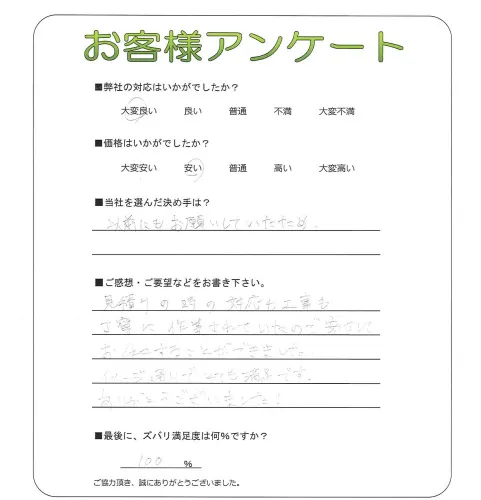 お客様アンケート
■弊社の対応はいかがでしたか?
大変良い 良い 普通 不満 大変不満
■価格はいかがでしたか?
大変安い 安い 普通 高い 大変高い
■当社を選んだ決め手は?
以前にもお願いしていたため。
■ご感想・ご要望などをお書き下さい。
見積りの時の対応も工事も
丁寧に作業されていたので安心して
お任せすることができました。
イメージ通りでとても満足です。
ありがとうございました!
■最後に、ズバリ満足度は何%ですか?
100 %
ご協力頂き、誠にありがとうございました。